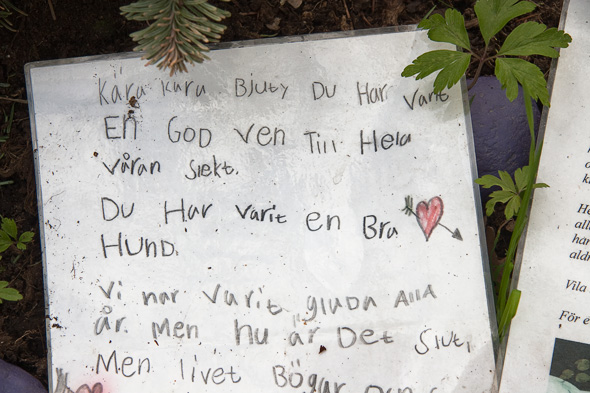 Kära kära Bjuty Du Har varit
En GOD ven Till Hela
våran slekt.
Du Har varit en Bra
HUND.
Vi har varit glada Alla
år. Men nu är Det slut,
Men livet Bögar
He
all
han
aldr
Vila
För e